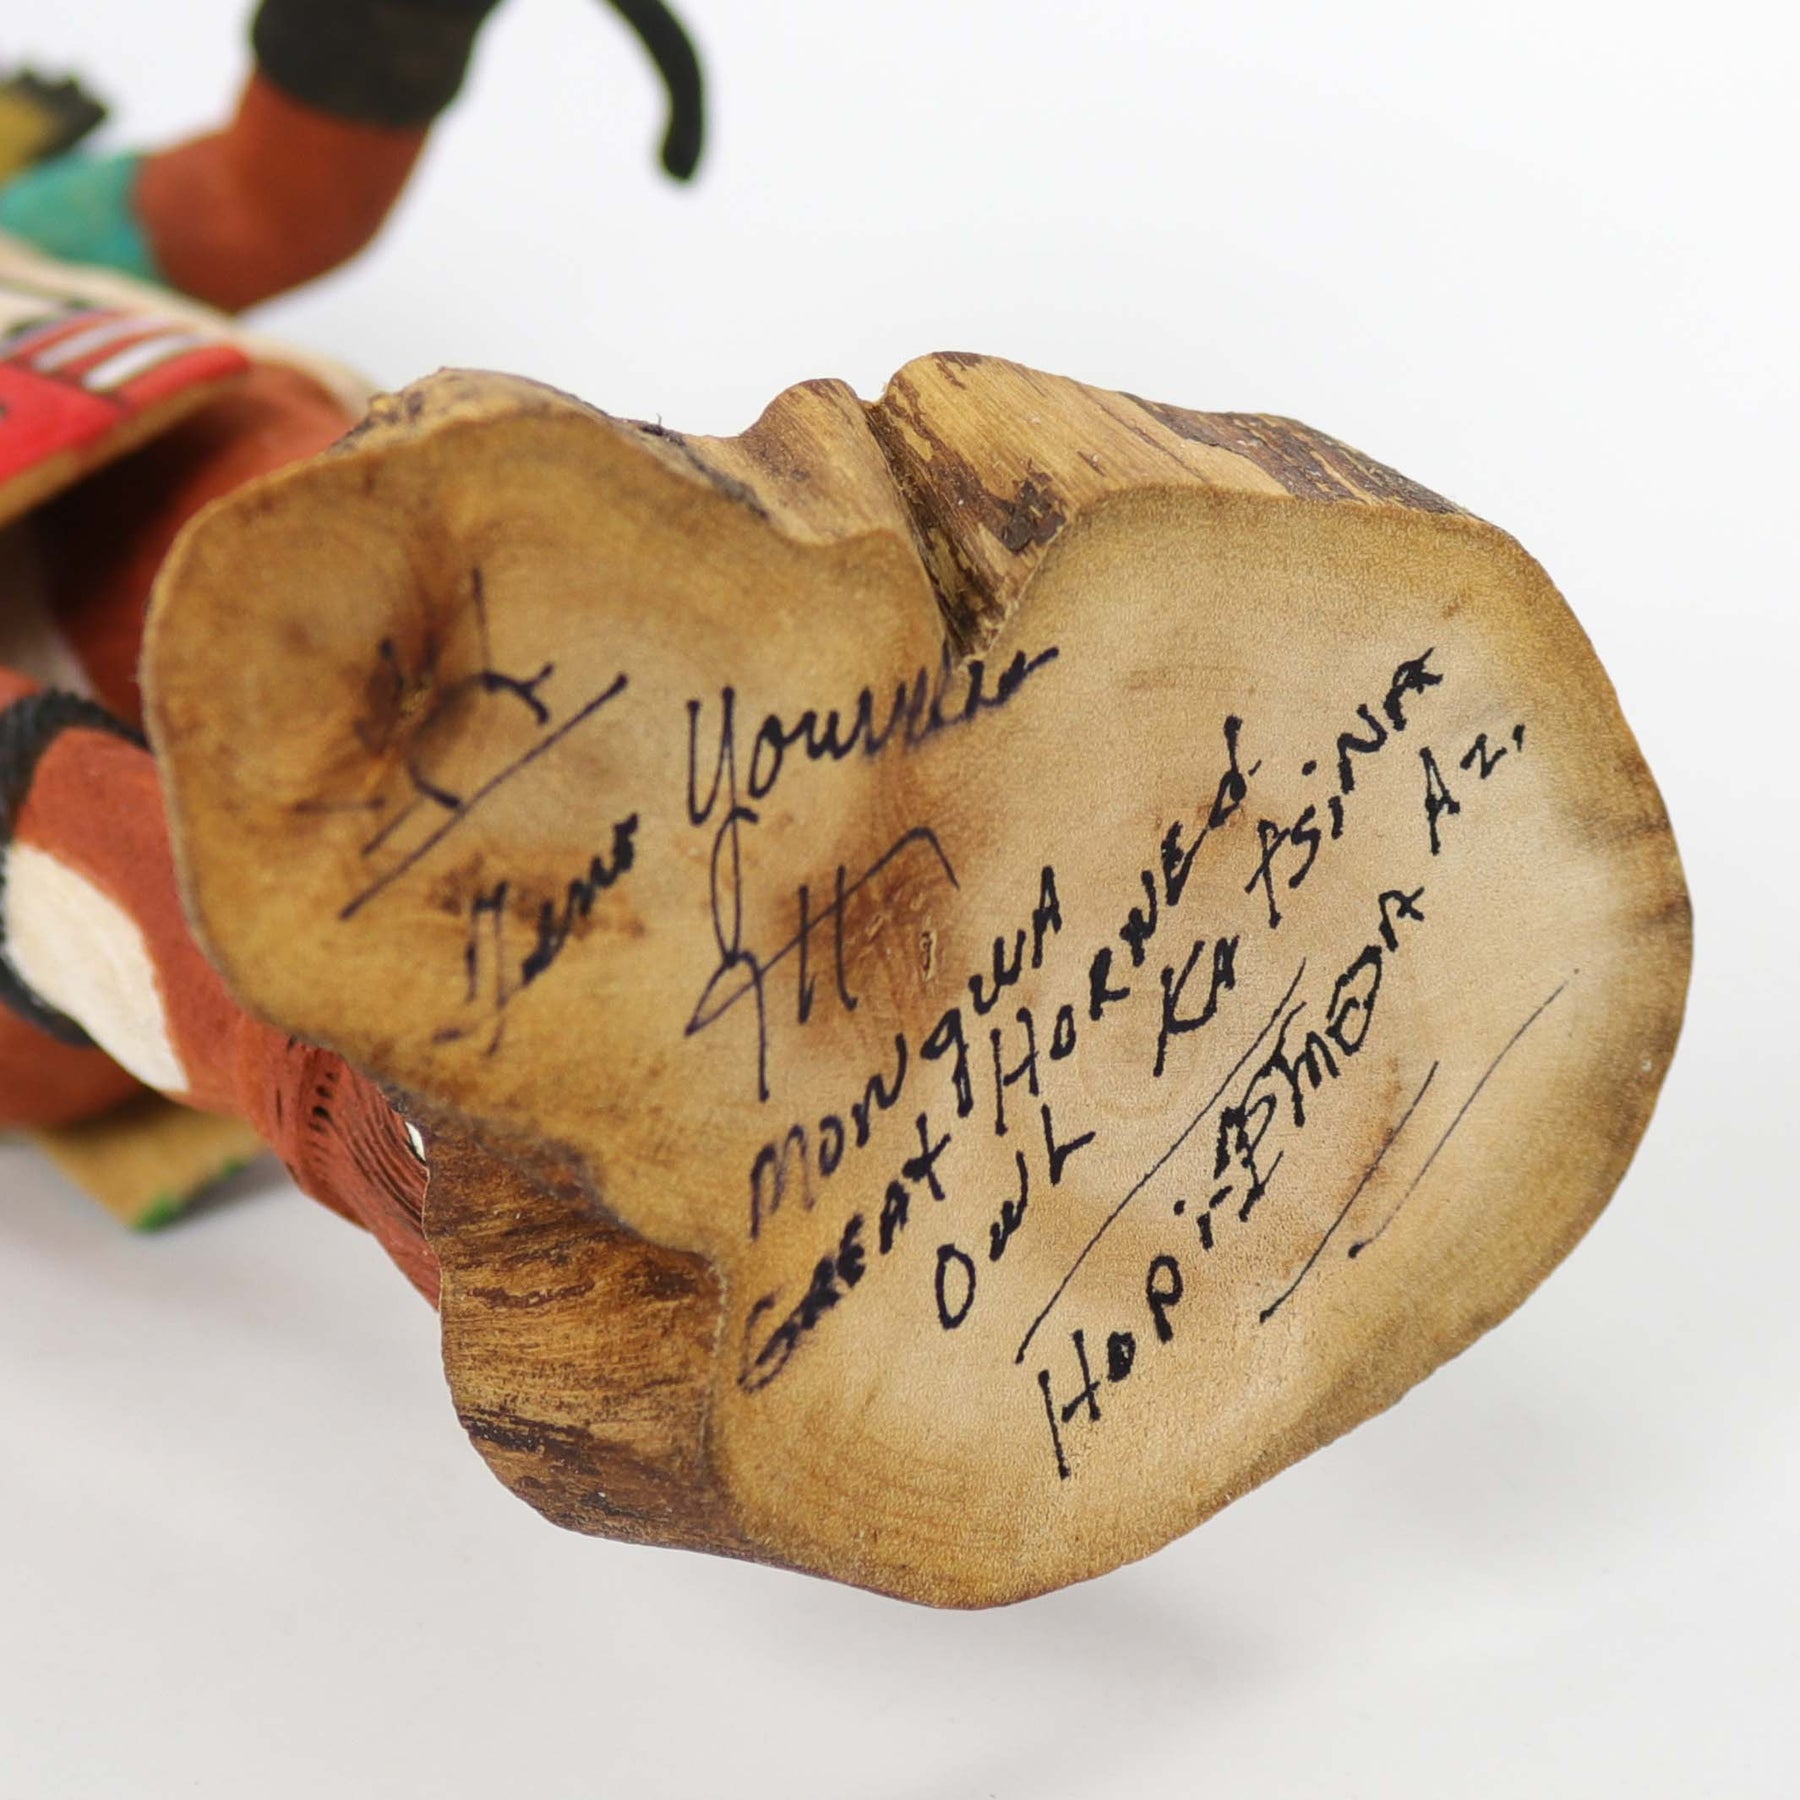 Tino Youvella
Mongwa
GREAT HORNED
OWL KATSINA
HOPi-
AZ.